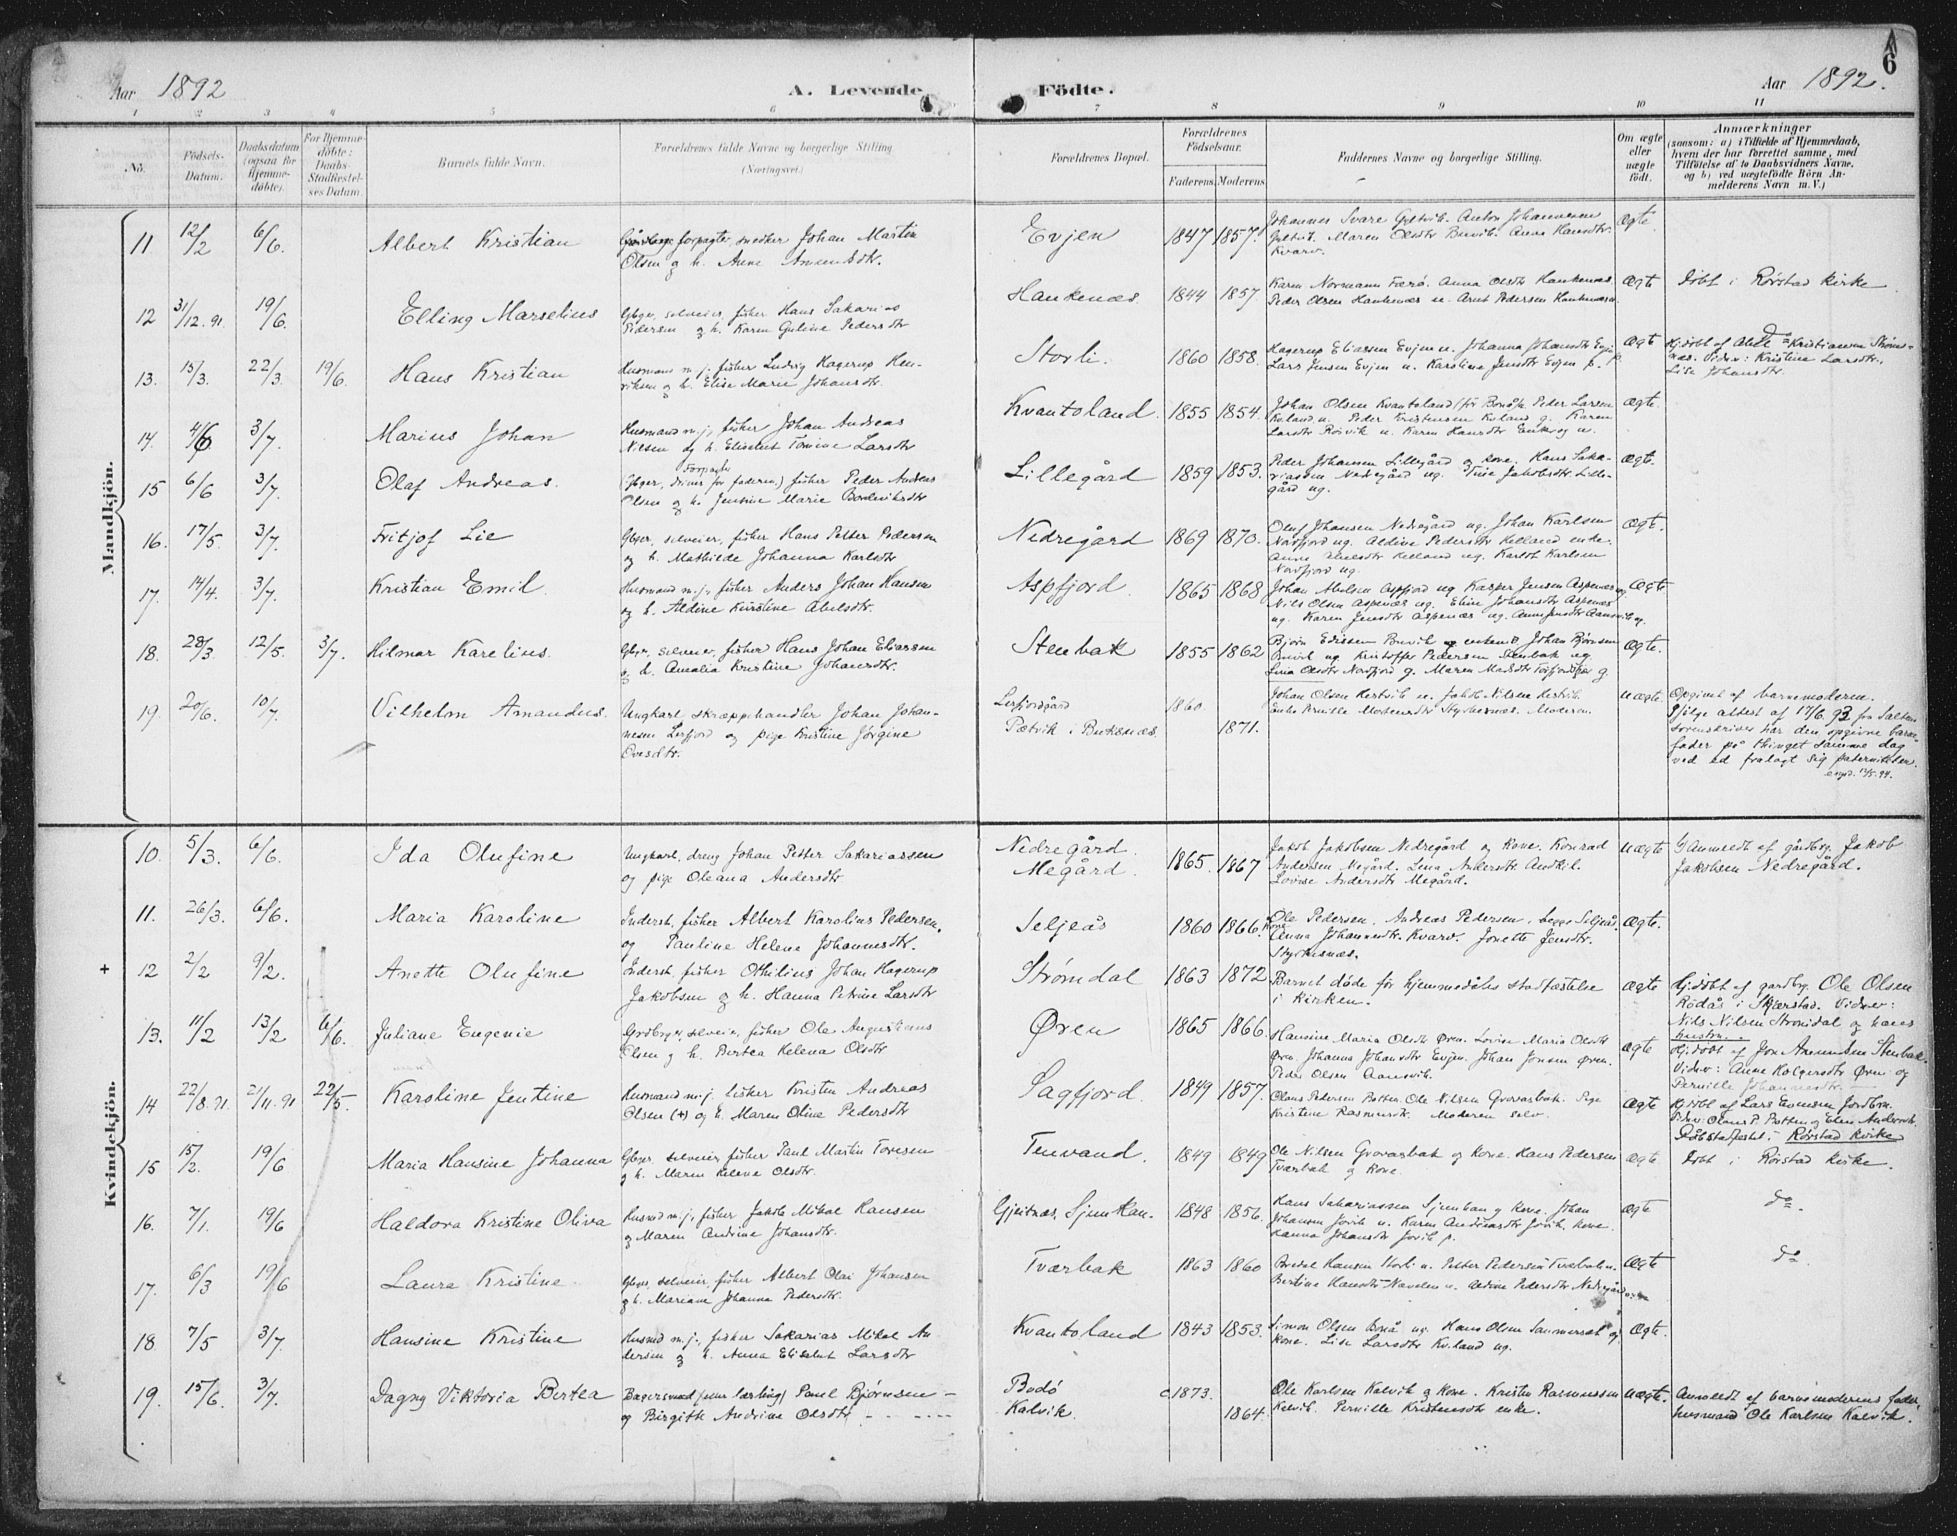 6
Aar 1892
A. Levende
Födte.
Aar 1892.
1 2 3 4 5 6 7 8 9 10 11
No.
Födsels-
Datum.
Daabsdatum
(ogsaa for
Hjemme-
döbte).
For Hjemme-
döbte:
Daabs-
Stadfæstel-
ses Datum.
Barnets fulde Navn.
Forældrenes fulde Navne og borgerlige Stilling
(Næringsvei.)
Forældrenes Bopæl.
Forældrenes
Födselsaar.
Faderens. Moderens.
Faddernes Navne og borgerlige Stilling.
Om ægte
eller
uægte
födt.
Anmærkninger
(saasom: a) i Tilfælde af Hjemmedaab,
hvem der har forrettet samme, med
Tilföielse af to Daabsvidners Navne,
og b) ved uægtefödte Börn An-
melderens Navn m. V.)
Mandkjön.
11 12/2 6/6. Albert Kristian
forpagter, snedker Johan Martin
Olsen g h. Anne Amundsdtr.
Evjen 1847 1857.
Johannes Svare Anton Johannesen
Maren Olsdtr Buvik. Anne Hansdtr.
Kvarv.
Ægte.
12 31/12.91 19/6. Elling Marselius
Gbgr, selveier, fisker Hans Sakarias
Pedersen og h. Karen Guline Pedersdtr
Haukenæs. 1844 1857.
Karen Normann Færø. Anna Olsdtr Haukenæs.
Peder Olsen Haukenæs u. Arnt Pedersen Haukenæs
Ægte
Döbt i Rørstad kirke
13. 13/3. 22/3. 19/6. Hans Kristian
Husmann m. j., fisker Ludvig Hagerup Hen-
riksen og h. Elise Marie Johansdtr.
Storli. 1860 1858.
Hagerup Eliassen Evjen u. Johanna Johansdtr Evjen
Lars Jensen Evjen u. Karoline Jensdtr Evjen p.
Ægte
Hj.döbt af Kristiansen Strøm-
næs. Vidner: Kristine Larsdtr.
Lise Johansdtr.
14. 4/6. 3/7. Marius Johan
Husmand m. j., fisker Johan Andreas
Nilsen og h. Elisabet Tomine Larsdtr
Kvantoland. 1855 1854.
Johan Olsen Kvantoland Peder Larsen
Kvland u. Peder Kristensen Kvland g. Karen
Larsdtr Røsvik u. Karen Hansdtr Enke og u.
Ægte.
15 6/6 3/7. Olaf Andreas.
Forpagter
(Gbger, driver for faderen) fisker Peder Andreas
Olsen og h. Jensine Marie Bordeviksdtr
Lillegård 1859 1853.
Peder Johansen Lillegård og kone. Hans Saka-
riassen Nedregård ug. Tine Jakobsdtr Lille-
gård ug.
Ægte.
16. 17/5. 3/7. Fritjof Lie
Gbger, selveier, fisker Hans Petter Pedersen
og h. Mathilde Johanna Karlsdtr
Nedregård 1869 1870.
Oluf Johansen Nedregård ug. Johan Karlsen
Nordfjord ug. Aldine Pedersdtr Helland enke.
Anne Helland ug. Karlot Karlsen
Nordfjord ug.
Ægte.
17. 14/4. 3/7. Kristian Emil.
Husmand m. j., fisker Anders Johan Hansen
og h. Aldine Kristine Abelsdtr.
Aspfjord. 1865 1868
Johan Abelsen Aspfjord ug Kasper Jensen Aspenæs ug
Nils Olsen Aspenæs ug. Eline Johansdtr Aspenæs
ug. Karen Jensdtr Aspenæs ug. Anne Jensdtr Aansvik ug.
Ægte
18. 28/3. 12/5. 3/7. Hilmar Karelius.
Gbgr, selveier, fisker Hans Johan Eliassen
g h. Amalia Kristine Johansdtr.
Stenbak 1855 1862
Bjørn Edissen Buvik Johan Bjørnsen
Buvik ug Kristoffer Pedersen Stenbak ug
Lina Olsdtr Nordfjord g. Maren g.
Ægte.
19. 20/6. 10/7. Vilhelm Amandus.
Ungkarl skræpphandler Johan Johan-
nesen Lerfjord og pige Kristine Jørgine
Ovesdtr.
Lerfjordgård
Pætvik i Buksnæs.
1860. 1871.
Johan Olsen Kertvik u. Jakob Nilsen Kestvik.
Enke Pernille Mortensdtr Styrkesnæs. Moderen.
Uægte
Opgivet af barnemoderen.
Ifølge attest af 17/6. 93 fra Salten
sorenskriver har den opgivne barne-
fader på thinget samme dag
ved ed fralagt sig paterniteten.
Kvindekjön.
10. 5/3. 6/6. Ida Olufine
Ungkarl, dreng Johan Petter Sakariassen
og pige Oleana Andersdtr.
Nedregård
Megård. 1865. 1867
Jakob Jakobsen Nedregård og kone. Konrad
Andersen Megård. Lina Andersdtr Andkil.
Lovise Andersdtr Megård.
Uægte
Anmeldt af gårdbrg. Jakob
Jakobsen Nedregård.
11. 26/3. 6/6. Maria Karoline
Inderst, fisker Albert Karolius Pedersen,
og Pauline Helene Johannesdtr.
Seljeås 1860 1866.
Ole Pedersen. Andreas Pedersen, begge Seljeås
Anna Johannesdtr. Kvarv. Jonette Jensdtr.
Styrkesnæs.
Ægte.
+ 12 2/2 9/2. Anette Olufine
Inderst, fisker Othilius Johan Hagerup
Jakobsen og h. Hanna Petrine Larsdtr
Strømdal 1863 1872
Barnet døde før hjemmedåbens stadfæstelse
i kirken.
Ægte
Hj.döbt af gardbrg. Ole Olsen
Rödås i Skjerstad. Vidner:
Nils Nilsen Strømdal og hans
hustru.
13. 11/2 13/2 6/6. Juliane Eugenie
Grdbrger, selveier, fisker Ole Augustinus
Olsen g h. Bertea Helena Olsdtr
Øren 1865 1866.
Hansine Maria Olsdtr Øren. Lovise Maria Olsdtr
Øren. Johanna Johansdtr Evjen. Johan Jonsen Øren.
Peder Olsen Aansvik.
Ægte
Hj.döbt af Jon Amundsen Stenbak.
Vidner: Anne Holgersdtr Øren og
Pernille Johannesdtr.
14 22/8.91. 21/11.91 22/5. Karoline Jentine
Husmand m. j. fisker Kristen Andreas
Olsen (+) og h. Maren Oline Pedersdtr
Sagfjord. 1849 1857.
Olaus Pedersen Botten. Ole Nilsen Grovasbak. Pige
Kristine Rasmusdtr. Moderen selv.
Ægte
Hj.döbt af Lars Evensen
Vidner: Olaus P. Botten og Elen Andersdtr.
Dåbsstadfæstet i Rørstad kirke
15 15/2. 19/6 Maria Hansine Johanna
Gbger, selveier, fisker Paul Martin Toresen
g h. Maren Helene Olsdtr.
Tenvand. 1849 1849
Ole Nilsen Grovasbak og kone. Hans Pedersen
Tværbak og kone.
Ægte
Döbt i Rørstad kirke.
16. 7/1. 19/6 Haldora Kristine Oliva
Husmd m. j., fisker Jakob Mikal Hansen
og Maren Andrine Johansdtr.
Gjeitnæs, Sjunkan. 1848 1856.
Hans Sakariassen Sjunkan g kone. Johan
Johansen Jovik u. Karen Andreasdtr Jovik, kone.
Hanna Johansdtr Jovik p.
Ægte
do.
17. 6/3 19/6 Laura Kristine.
Gbger, selveier, fisker Albert Olai Johansen
g h. Mariane Johanna Pedersdtr.
Tværbak 1863 1860
Bredal Hansen Storli u. Petter Pedersen Tværbak u.
Bertine Hansdtr Navelen u. Aldine Pedersdtr Nedregård
Ægte
do.
18. 7/5 3/7. Hansine Kristine
Husmd m. j., fisker Sakarias Mikal An-
dersen og h. Anna Elisabet Larsdtr
Kvantoland 1843 1853.
Simon Olsen Bonå ug. Hans Olsen Sommerset g
kone. Lise Larsdtr Kvland ug.
Ægte.
19. 15/6. 3/7. Dagny Viktoria Bertea
Bagersvend Paul Bjørnsen –
og Birgitte Andrine Olsdtr
Bodö
Kalvik. c1873. 1864.
Ole Karlsen Kalvik g kone. Kristen Rasmussen
Kalvik. Pernille Kristensdtr enke.
Uægte.
Anmeldt af barnemoderens fader,
husmand Ole Karlsen Kalvik.